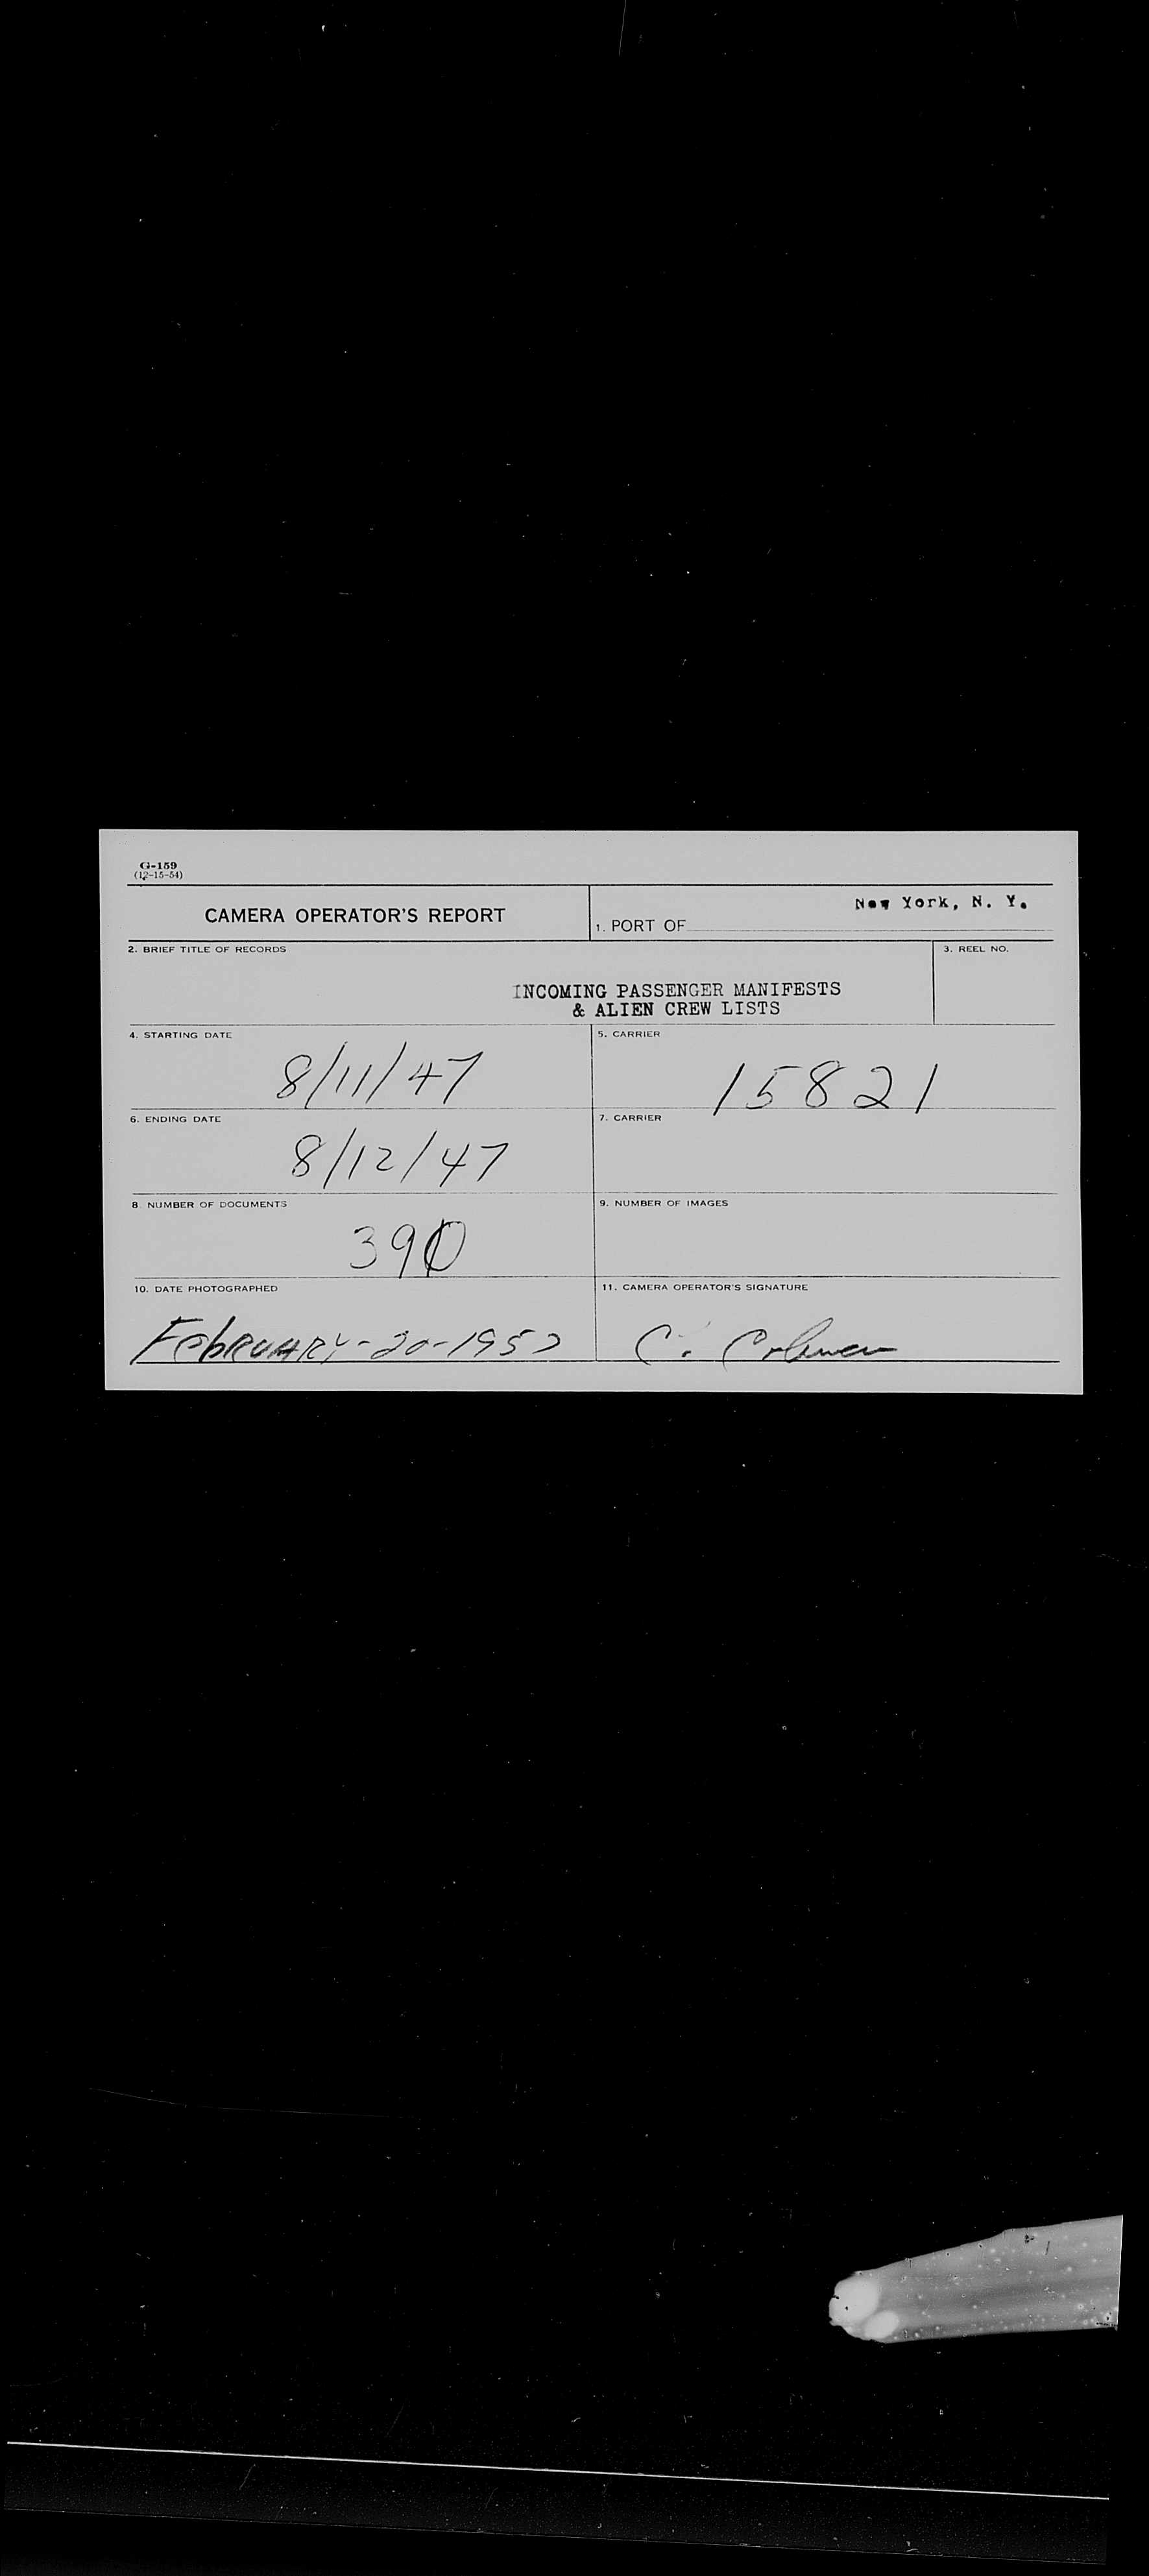 G-159
(12-15-54)
CAMERA OPERATOR'S REPORT
1. PORT OF New York, N. Y.
2. BRIEF TITLE OF RECORDS
3. REEL NO.
INCOMING PASSENGER MANIFESTS
& ALIEN CREW LISTS
4. STARTING DATE
8/11/47
5. CARRIER
15821
6. ENDING DATE
8/12/47
7. CARRIER
8. NUMBER OF DOCUMENTS
390
9. NUMBER OF IMAGES
10. DATE PHOTOGRAPHED
FebRUARY-20-1957
11. CAMERA OPERATOR'S SIGNATURE
C.